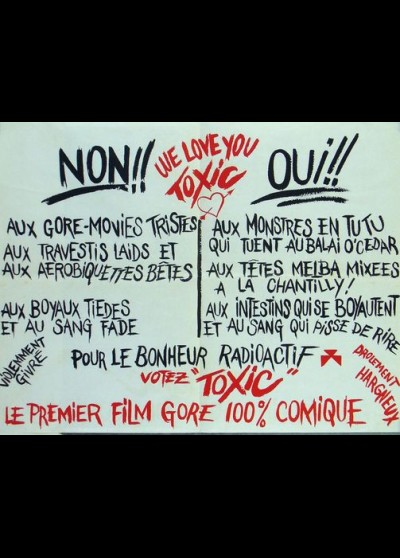 WE LOVE YOU
TOXIC
NON!!
AUX GORE-MOVIES TRISTES
AUX TRAVESTIS LAIDS ET
AUX AÉROBIQUETTES BÊTES
AUX BOYAUX TIEDES
ET AU SANG FADE
OUI!!
AUX MONSTRES EN TUTU
QUI TUENT AU BALAI O'CEDAR
AUX TÊTES MELBA MIXEES
A LA CHANTILLY!
AUX INTESTINS QUI SE BOYAUTENT
ET AU SANG QUI PISSE DE RIRE
VIOLEMMENT
GIVRÉ
POUR LE BONHEUR RADIOACTIF
VOTEZ "TOXIC"
DROLEMENT
HARGNEUX
LE PREMIER FILM GORE 100% COMIQUE